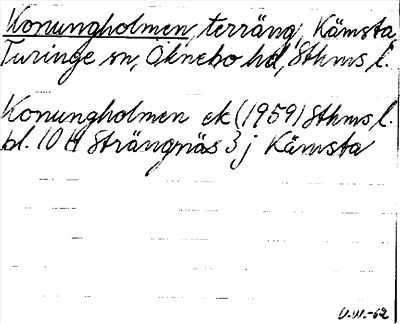 Konungholmen, terräng, Kämsta,
Turinge sn, Öknebo hd, Sthms l.
Konungholmen ek (1959) Sthms l.
bl. 10 H Strängnäs 3 j Kämsta
U.W.-62